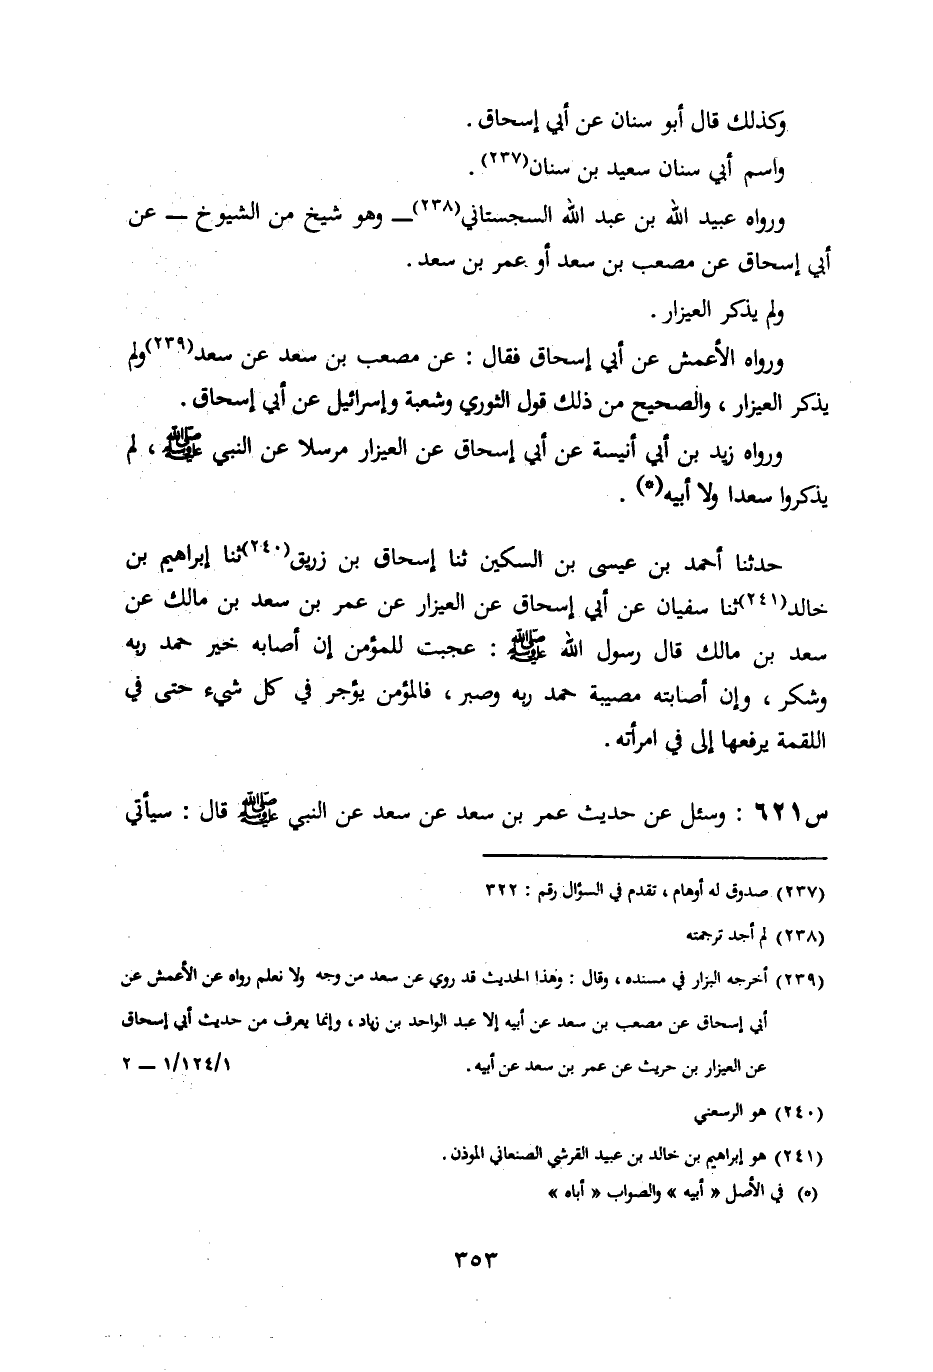 وكذلك قال أبو سنان عن أبي إسحاق .
واسم أبي سنان سعيد بن سنان(٢٣٧) .
ورواه عبيد الله بن عبد الله السجستاني(٢٣٨)ــ وهو شيخ من الشيوخ ــ عن
أبي إسحاق عن مصعب بن سعد أو عمر بن سعد .
ولم يذكر العيزار .
ورواه الأعمش عن أبي إسحاق فقال : عن مصعب بن سعد عن سعد(٢٣٩)ولم
يذكر العيزار ، والصحيح من ذلك قول الثوري وشعبة وإسرائيل عن أبي إسحاق .
ورواه زيد بن أبي أنيسة عن أبي إسحاق عن العيزار مرسلا عن النبي ﷺ ، لم
يذكروا سعدا ولا أبيه(*) .
حدثنا أحمد بن عيسى بن السكين ثنا إسحاق بن زريق(٢٤٠)ثنا إبراهيم بن
خالد(٢٤١)ثنا سفيان عن أبي إسحاق عن العيزار عن عمر بن سعد بن مالك عن
سعد بن مالك قال رسول الله ﷺ : عجبت للمؤمن إن أصابه خير حمد ربه
وشكر ، وإن أصابته مصيبة حمد ربه وصبر ، فالمؤمن يؤجر في كل شيء حتى في
اللقمة يرفعها إلى في امرأته .
س٦٢١ : وسئل عن حديث عمر بن سعد عن سعد عن النبي ﷺ قال : سيأتي
(٢٣٧) صدوق له أوهام ، تقدم في السؤال رقم : ٣٢٢
(٢٣٨) لم أجد ترجمته
(٢٣٩) أخرجه البزار في مسنده ، وقال : وهذا الحديث قد روي عن سعد من وجه ولا نعلم رواه عن الأعمش عن
أبي إسحاق عن مصعب بن سعد عن أبيه إلا عبد الواحد بن زياد ، وإنما يعرف من حديث أبي إسحاق
عن العيزار بن حريث عن عمر بن سعد عن أبيه . ١/١٢٤/١ ــ ٢
(٢٤٠) هو الرسعني
(٢٤١) هو إبراهيم بن خالد بن عبيد القرشي الصنعاني المؤذن .
(٥) في الأصل « أبيه » والصواب « أباه »
٣٥٣